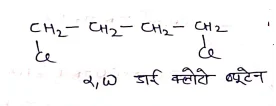 CH₂ - CH₂ - CH₂ - CH₂
Cl Cl
α, ω डाई क्लोरो ब्यूटेन